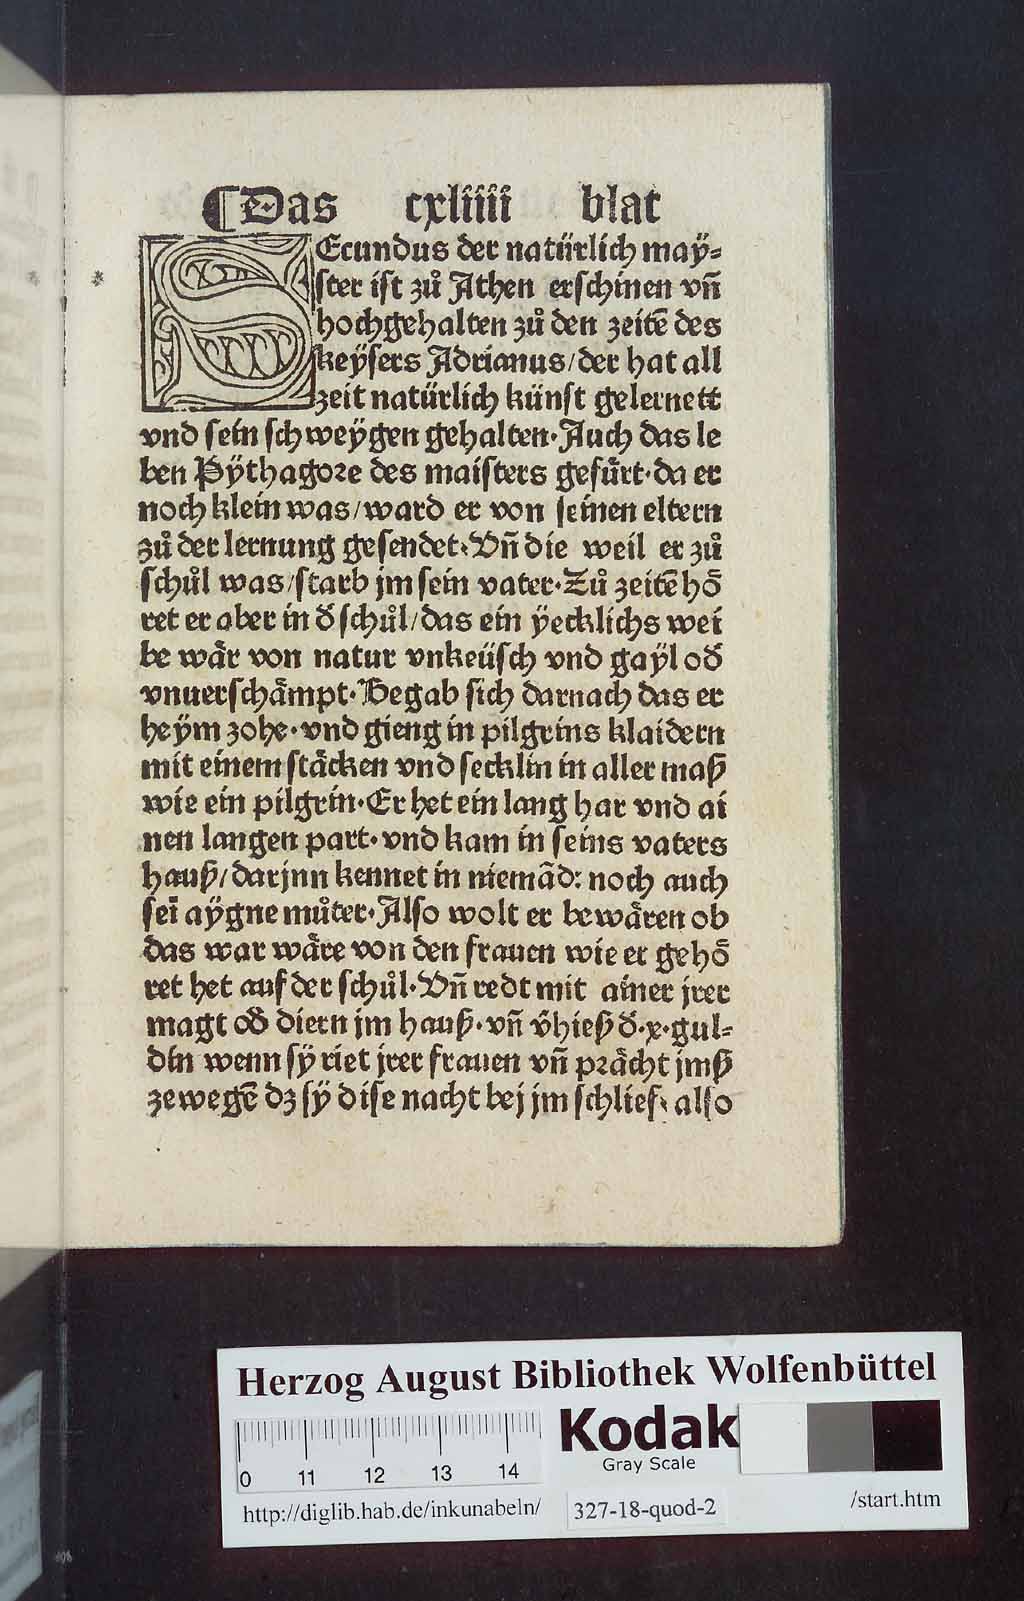 ¶Das cxliiii blat
SEcundus der natürlich maÿ⸗
ster ist zů Athen erschinen vn̄
hochgehalten zů den zeitē des
keÿsers Adrianus/der hat all
zeit natürlich künst gelernett
vnd sein schweÿgen gehalten·Auch das le
ben Pÿthagore des maisters gefürt·da er
noch klein was/ward er von seinen eltern
zů der lernung gesendet·Vn̄ die weil er zů
schůl was/starb jm sein vater·Zů zeitē hō
ret er aber in đ schůl/das ein ÿecklichs wei
be wär von natur vnkeüsch vnd gaÿl ođ
vnuerschämpt·Begab sich darnach das er
heÿm zohe·vnd gieng in pilgrins klaidern
mit einem stäcken vnd secklin in aller maß
wie ein pilgrin·Er het ein lang har vnd ai
nen langen part·vnd kam in seins vaters
hauß/darjnn kennet in niemād: noch auch
sei̅ aÿgne můter·Also wolt er bewären ob
das war wäre von den frauen wie er gehö
ret het auf der schůl·Vn̄ redt mit ainer jrer
magt ođ diern jm hauß·vn̄ v̄hieß đ·x·gul⸗
din wenn sÿ riet jrer frauen vn̄ prächt jmß
zewegē dz sÿ dise nacht bej jm schlief· also
Herzog August Bibliothek Wolfenbüttel
0 11 12 13 14
Kodak
Gray Scale
http://diglib.hab.de/inkunabeln/ 327-18-quod-2 /start.htm